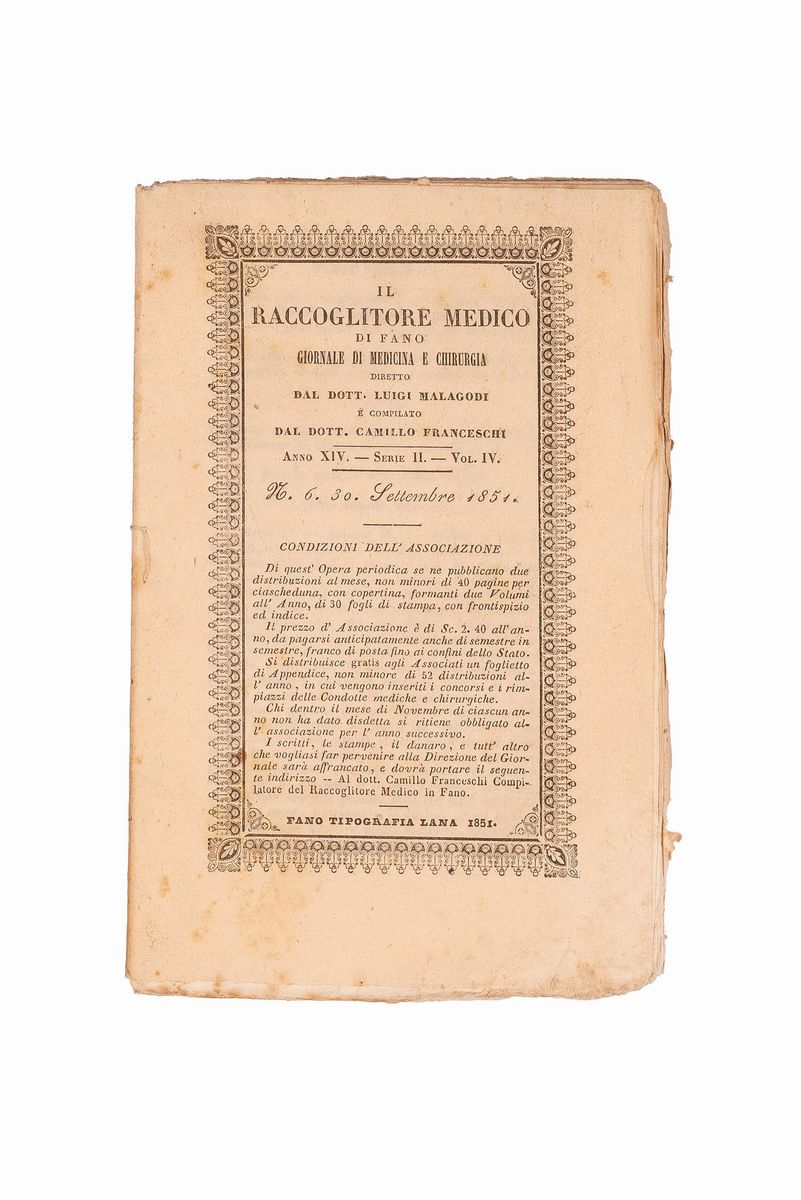 IL
RACCOGLITORE MEDICO
DI FANO
GIORNALE DI MEDICINA E CHIRURGIA
DIRETTO
DAL DOTT. LUIGI MALAGODI
E COMPILATO
DAL DOTT. CAMILLO FRANCESCHI
ANNO XIV. — SERIE II. — VOL. IV.
N. 6. 30. Settembre 1851.
CONDIZIONI DELL' ASSOCIAZIONE
Di quest' Opera periodica se ne pubblicano due
distribuzioni al mese, non minori di 40 pagine per
ciascheduna, con copertina, formanti due Volumi
all' Anno, di 30 fogli di stampa, con frontispizio
ed indice.
Il prezzo d' Associazione è di Sc. 2. 40 all' an-
no, da pagarsi anticipatamente anche di semestre in
semestre, franco di posta fino ai confini dello Stato.
Si distribuisce gratis agli Associati un foglietto
di Appendice, non minore di 52 distribuzioni al-
l' anno, in cui vengono inseriti i concorsi e i rim-
piazzi delle Condotte mediche e chirurgiche.
Chi dentro il mese di Novembre di ciascun an-
no non ha dato disdetta si ritiene obbligato al-
l' associazione per l' anno successivo.
I scritti, le stampe, il danaro, e tutt' altro
che vogliasi far pervenire alla Direzione del Gior-
nale sarà affrancato, e dovrà portare il seguen-
te indirizzo -- Al dott. Camillo Franceschi Compi-
latore del Raccoglitore Medico in Fano.
FANO TIPOGRAFIA LANA 1851.